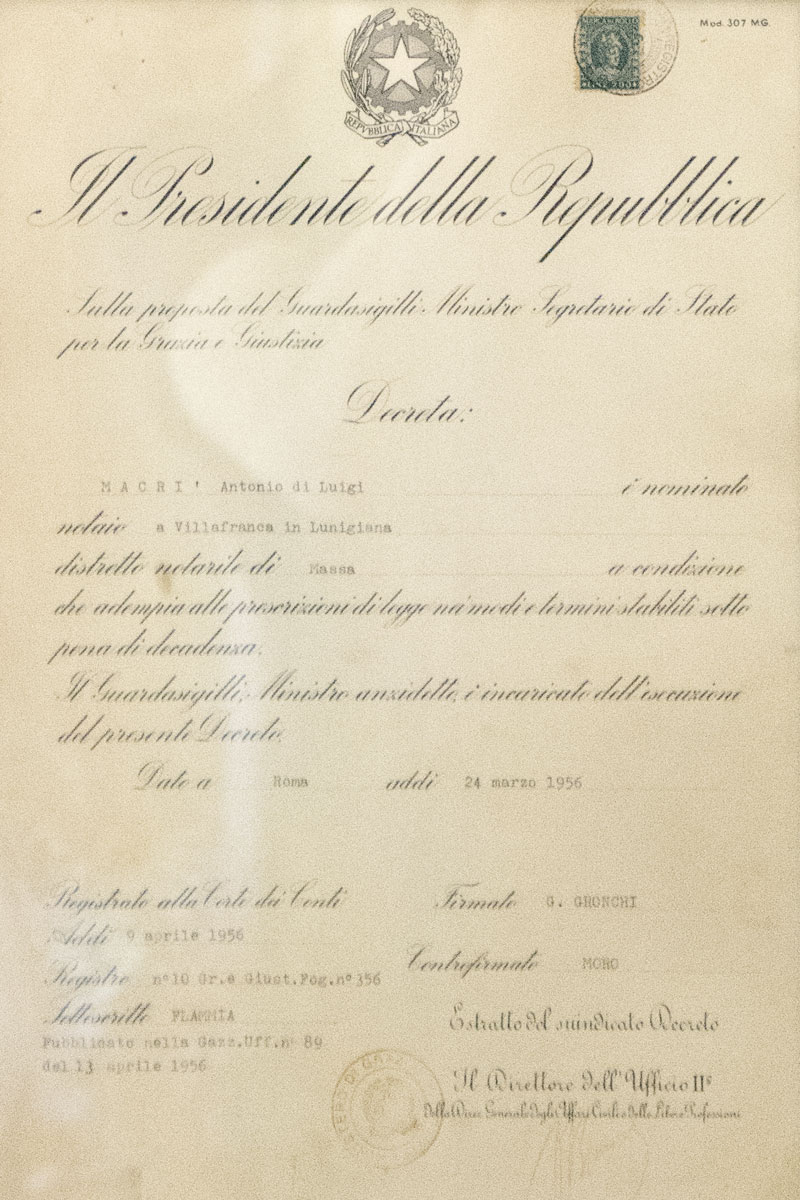 Mod. 307 M.G.
MARCA DA BOLLO
REPVBBLICA ITALIANA
Il Presidente della Repubblica
Sulla proposta del Guardasigilli Ministro Segretario di Stato
per la Grazia e Giustizia
Decreta:
MACRI' Antonio di Luigi è nominato
notaio a Villafranca in Lunigiana
distretto notarile di Massa a condizione
che adempia alle prescrizioni di legge nei modi e termini stabiliti sotto
pena di decadenza.
Il Guardasigilli, Ministro anzidetto, è incaricato dell'esecuzione
del presente Decreto.
Dato a Roma addì 24 marzo 1956
Registrato alla Corte dei Conti
Addì 9 aprile 1956
Registro n°10 Gr.e Giust.Fog.n°356
Sottoscritto FLAMMIA
Pubblicato nella Gazz.Uff.n° 89
del 13 aprile 1956
Firmato G. GRONCHI
Controfirmato MORO
Estratto del suindicato Decreto
Il Direttore dell'Ufficio II°
della Direz. Generale degli Affari Civili e delle Libere Professioni